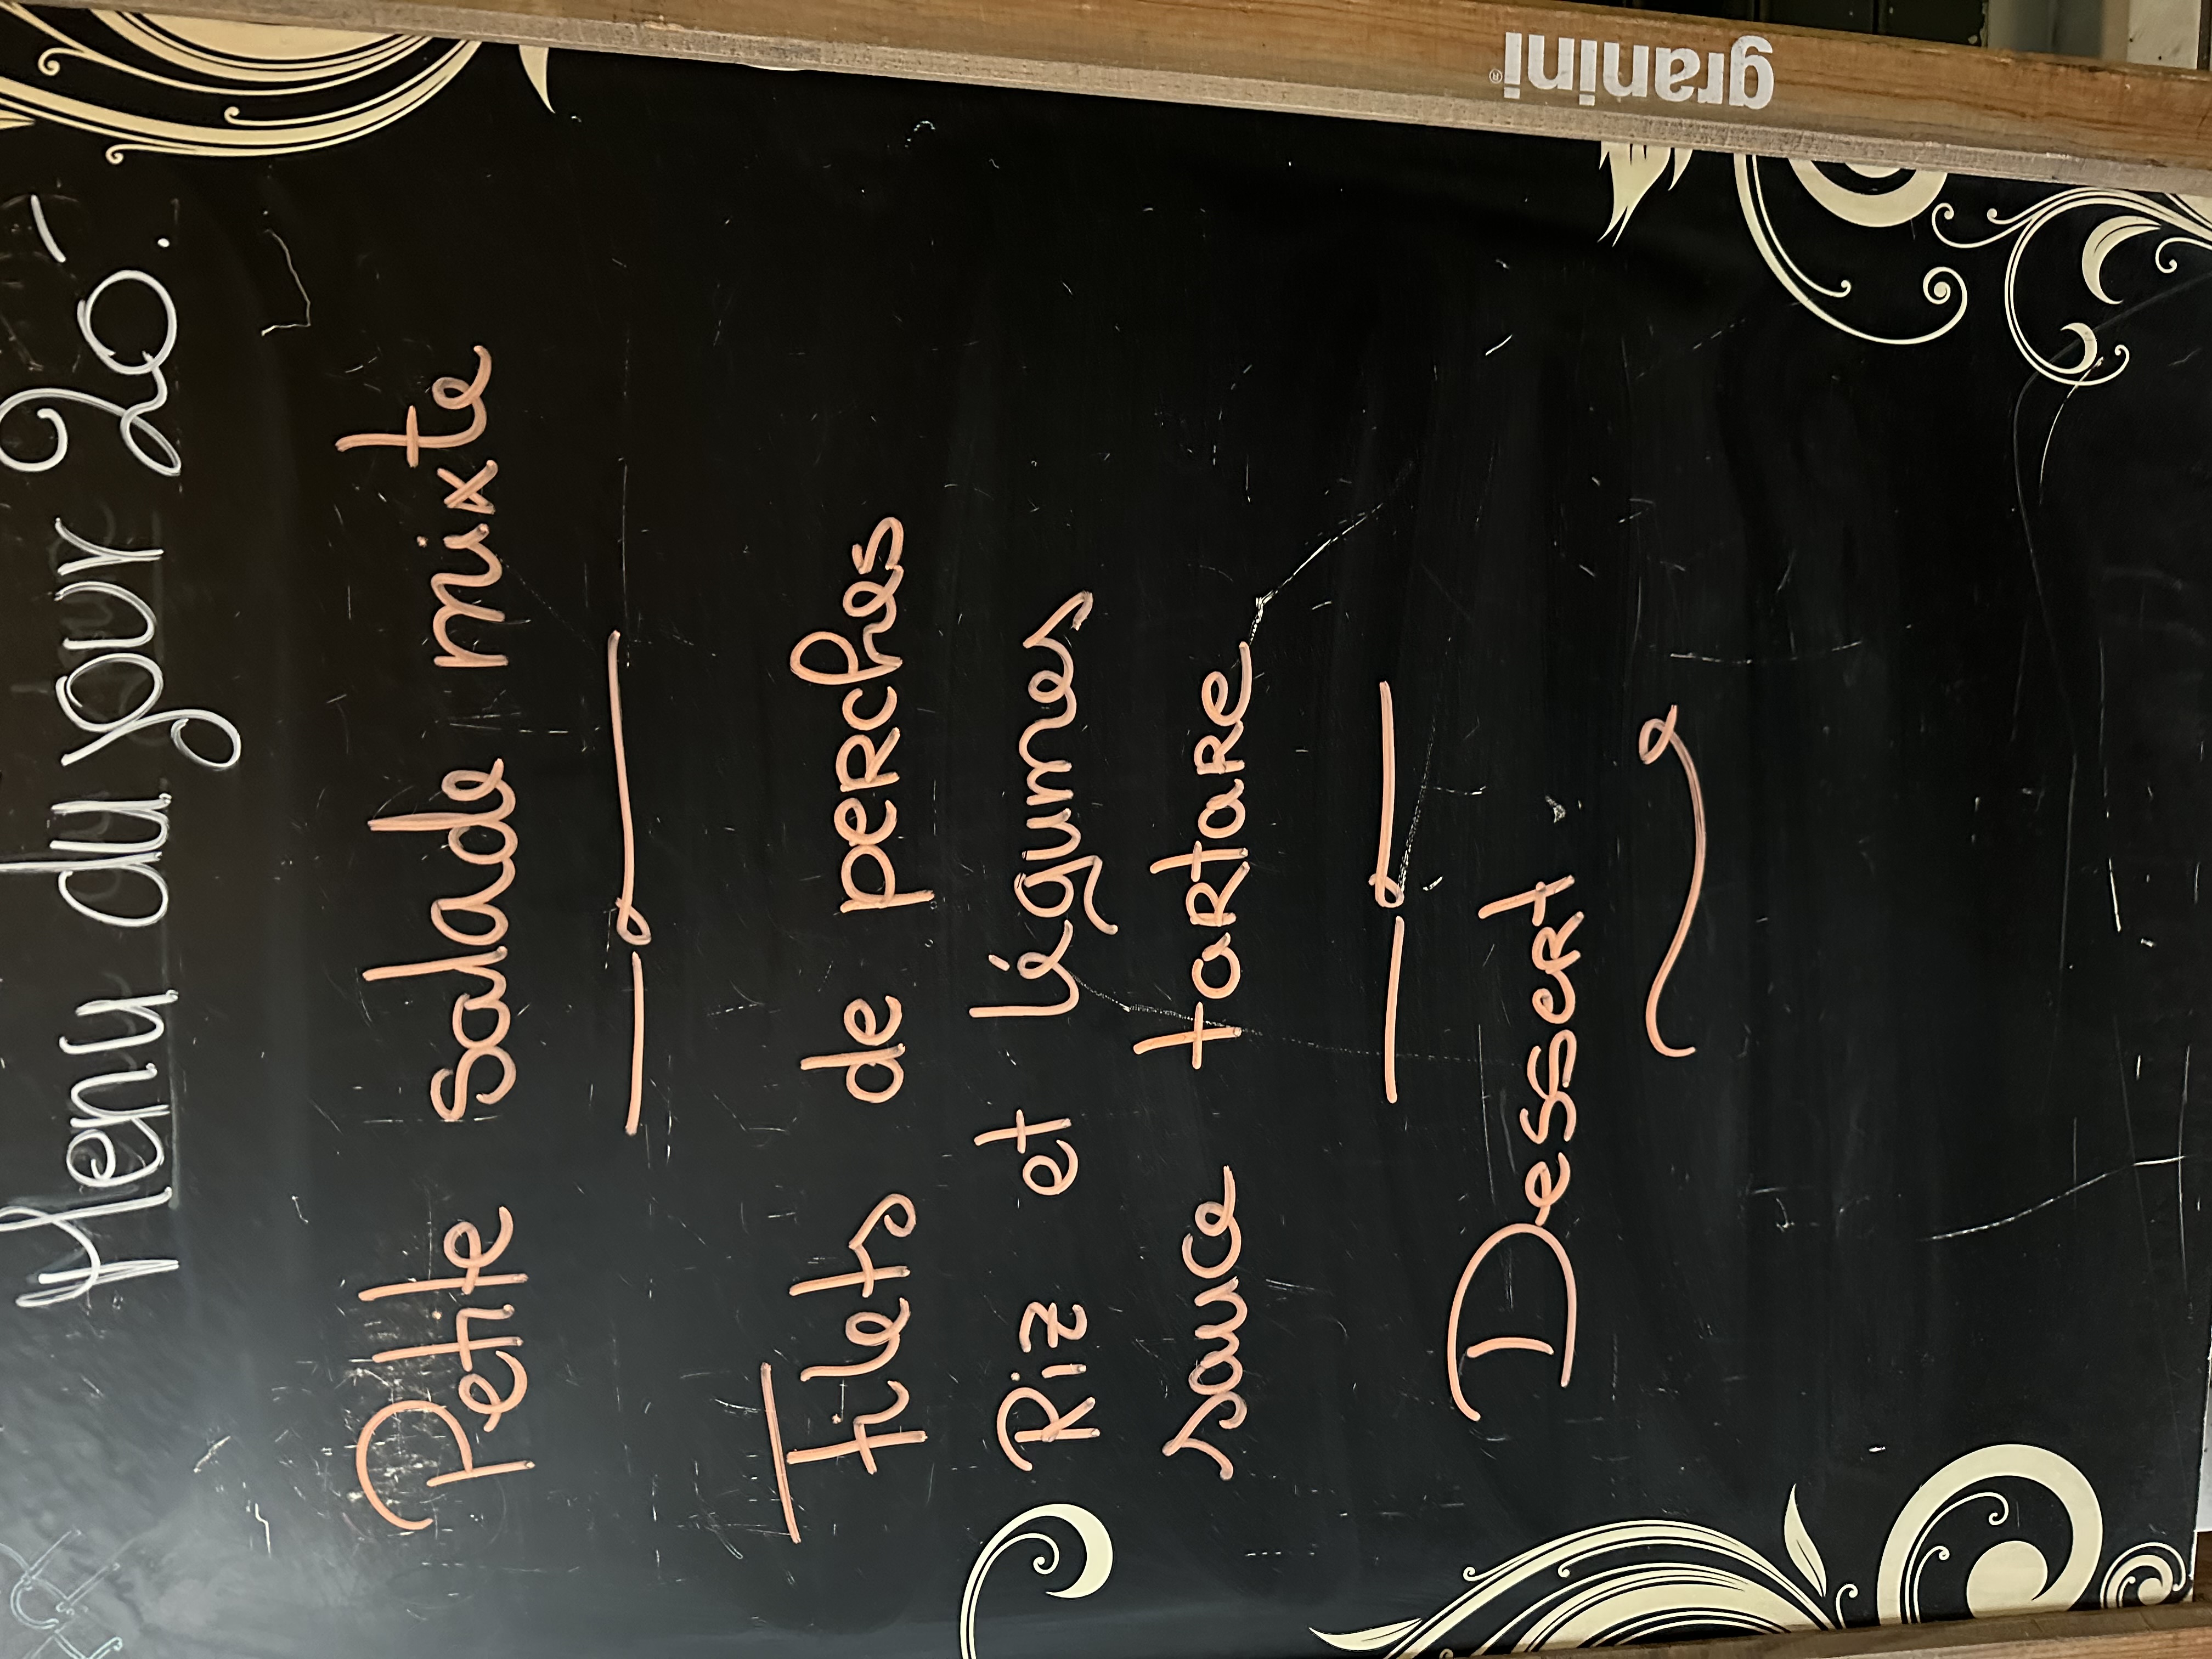 Menu du jour 20.-
Petite salade mixte
Filets de perches
Riz et légumes
sauce tartare
Dessert
granini